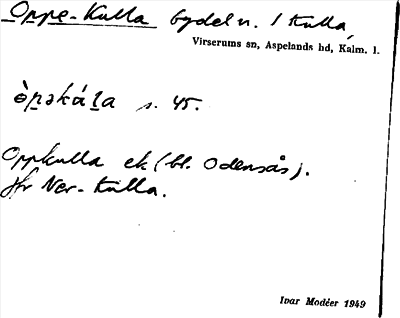 Oppe-Kulla bydel n. i Kulla,
Virserums sn, Aspelands hd, Kalm. l.
òpəkúla s. 45.
Oppkulla ek (bl. Odensås).
Jfr Ner-Kulla.
Ivar Modéer 1949